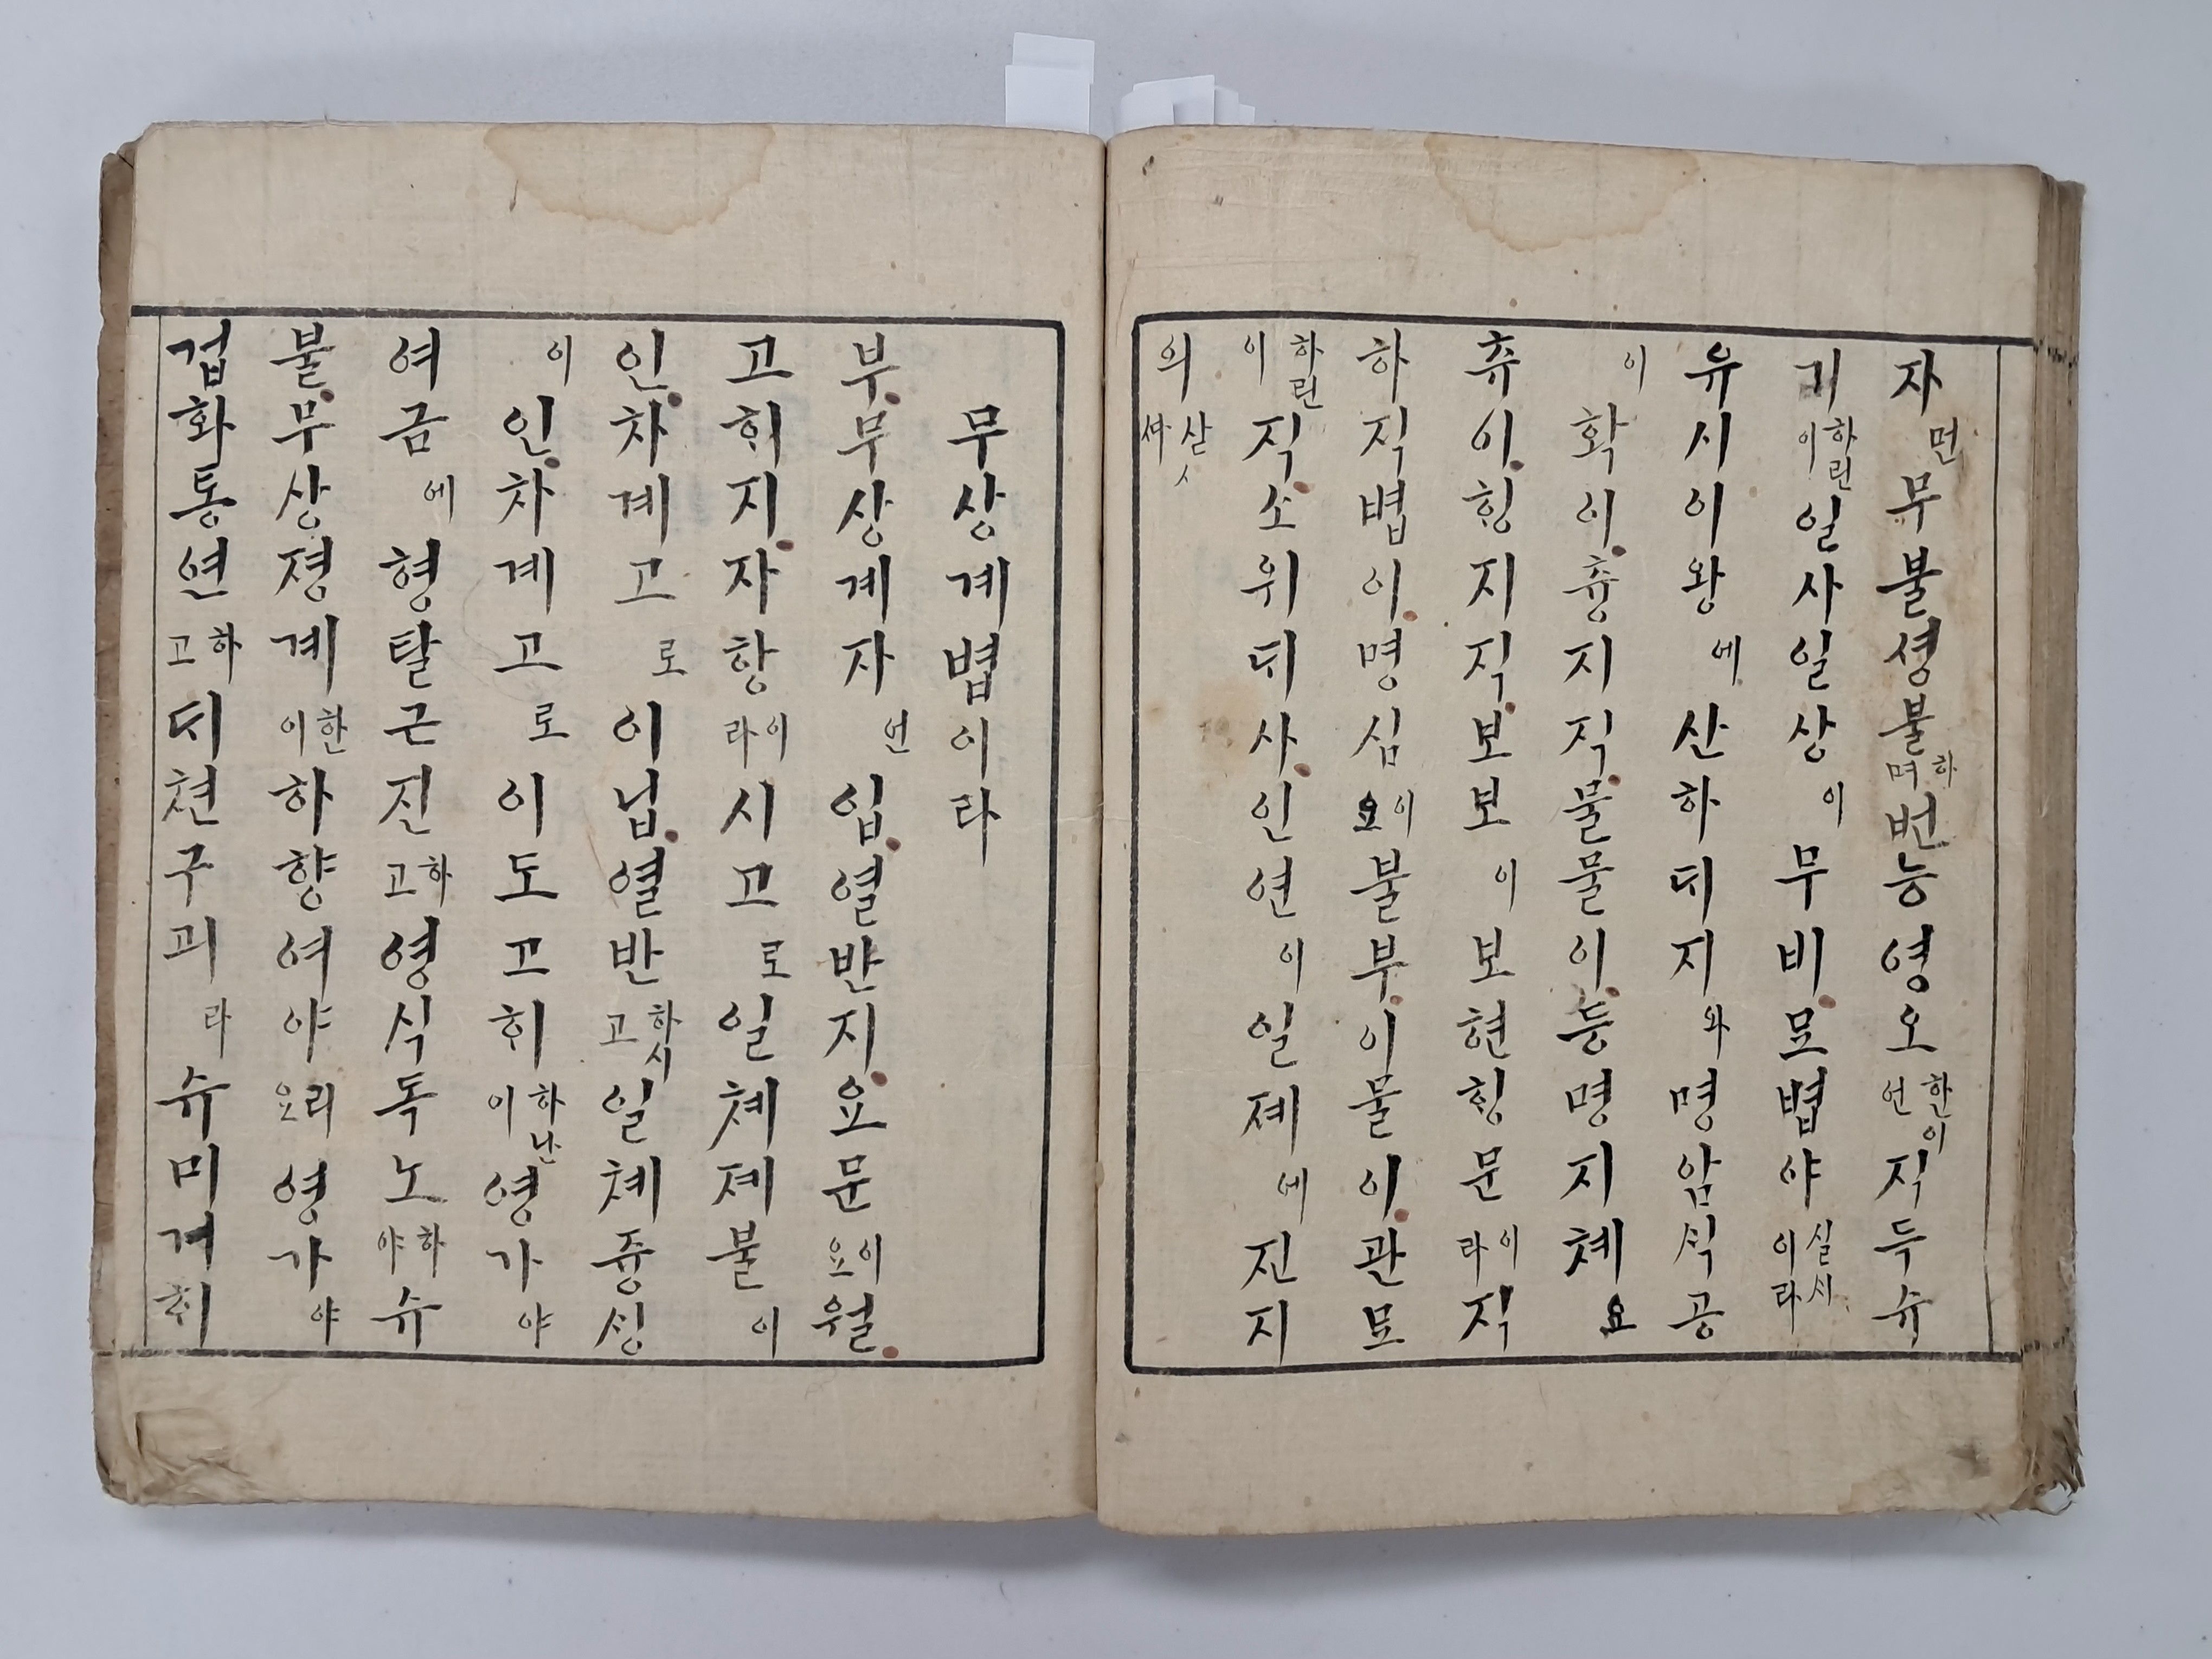 자먼무불셩불하며번능영오한이언직두슈
기하린이일사일상이무비묘볍야실시이라
유시이왕에산하ᄃᆡ지와명암ᄉᆡᆨ공
이확이츙지직물물이등명지쳬요
츄이ᄒᆡᆼ지직보보이보현ᄒᆡᆼ문이라직
하직볍이명심이요불부이물이이관묘
하린이직소위ᄃᆡ사인연이일졔에진지
의살
무상계볍이라
부무상계자언입열뱐지요문이요월
고ᄒᆡ지자항이라시고로일쳬졔불이
인차계고로이닙열반하시고일쳬즁ᄉᆡᆼ
이인차계고로이도고ᄒᆡ하난이영가야
여금에형탈근진하고영식독노하야슈
불무상졍계한이하향여야리요영가야
겁화통연하고ᄃᆡ쳔구괴라슈미거ᄒᆡ